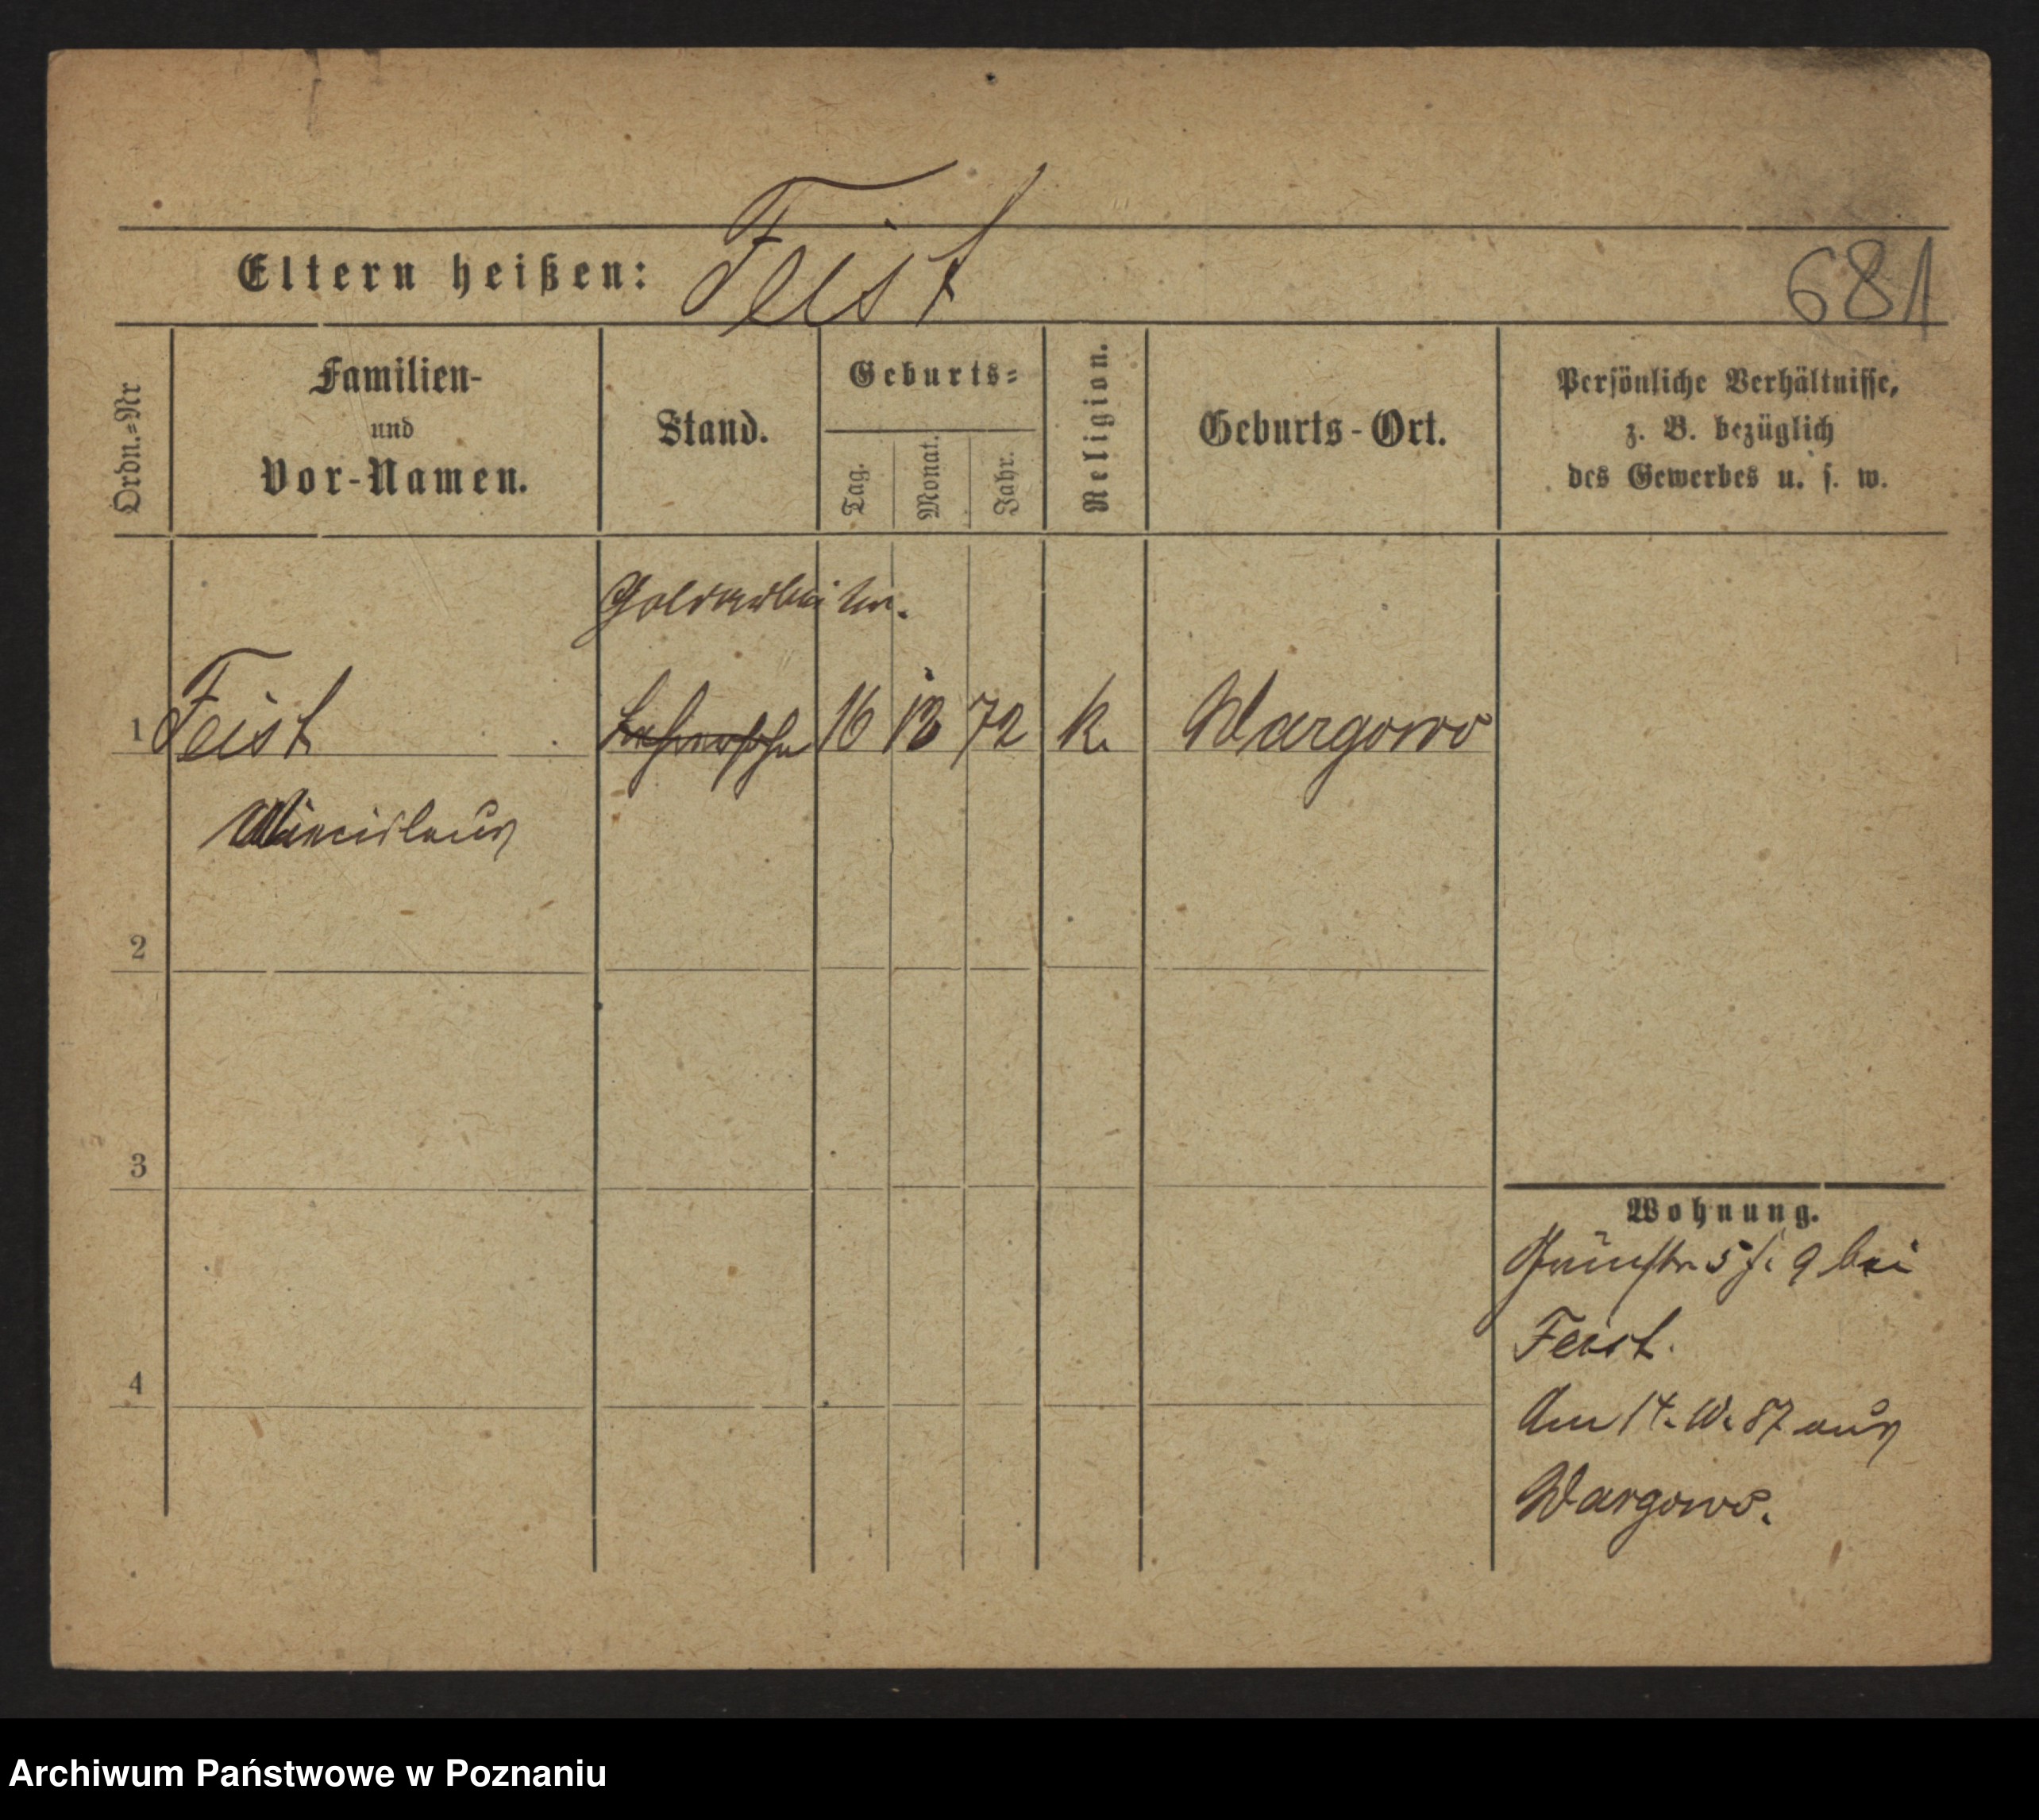 Eltern heißen: Feist
681
Ordn.=Nr
Familien-
und
Vor-Namen.
Stand.
Geburts=
Tag.
Monat.
Jahr.
Religion.
Geburts-Ort.
Persönliche Verhältnisse,
z. B. bezüglich
des Gewerbes u. s. w.
Goldarbeiter.
1 Feist 16 12 72 k. Wargowo
2
3
4
Wohnung.
5 9 bei
Feist.
Am 14. 10. 87 aus
Wargowo.
Archiwum Państwowe w Poznaniu